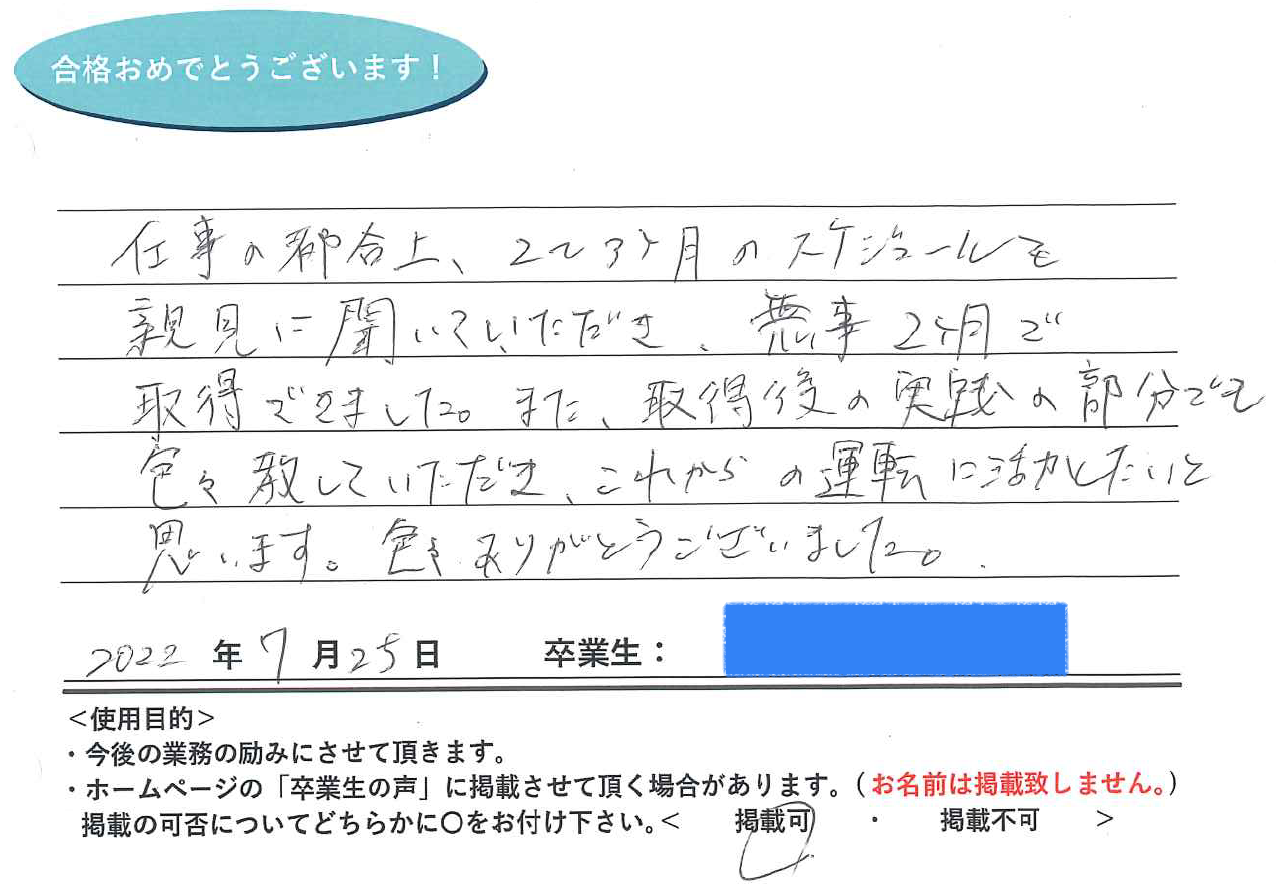 合格おめでとうございます！
仕事の都合上、2〜3ヶ月のスケジュールも
親見に聞いていただき、無事2ヶ月で
取得できました。また、取得後の実践の部分でも
色々教していただき、これからの運転に活かしたいと
思います。色々ありがとうございました。
2022年7月25日 卒業生：
＜使用目的＞
・今後の業務の励みにさせて頂きます。
・ホームページの「卒業生の声」に掲載させて頂く場合があります。（お名前は掲載致しません。）
掲載の可否についてどちらかに〇をお付け下さい。＜ 掲載可 ・ 掲載不可 ＞